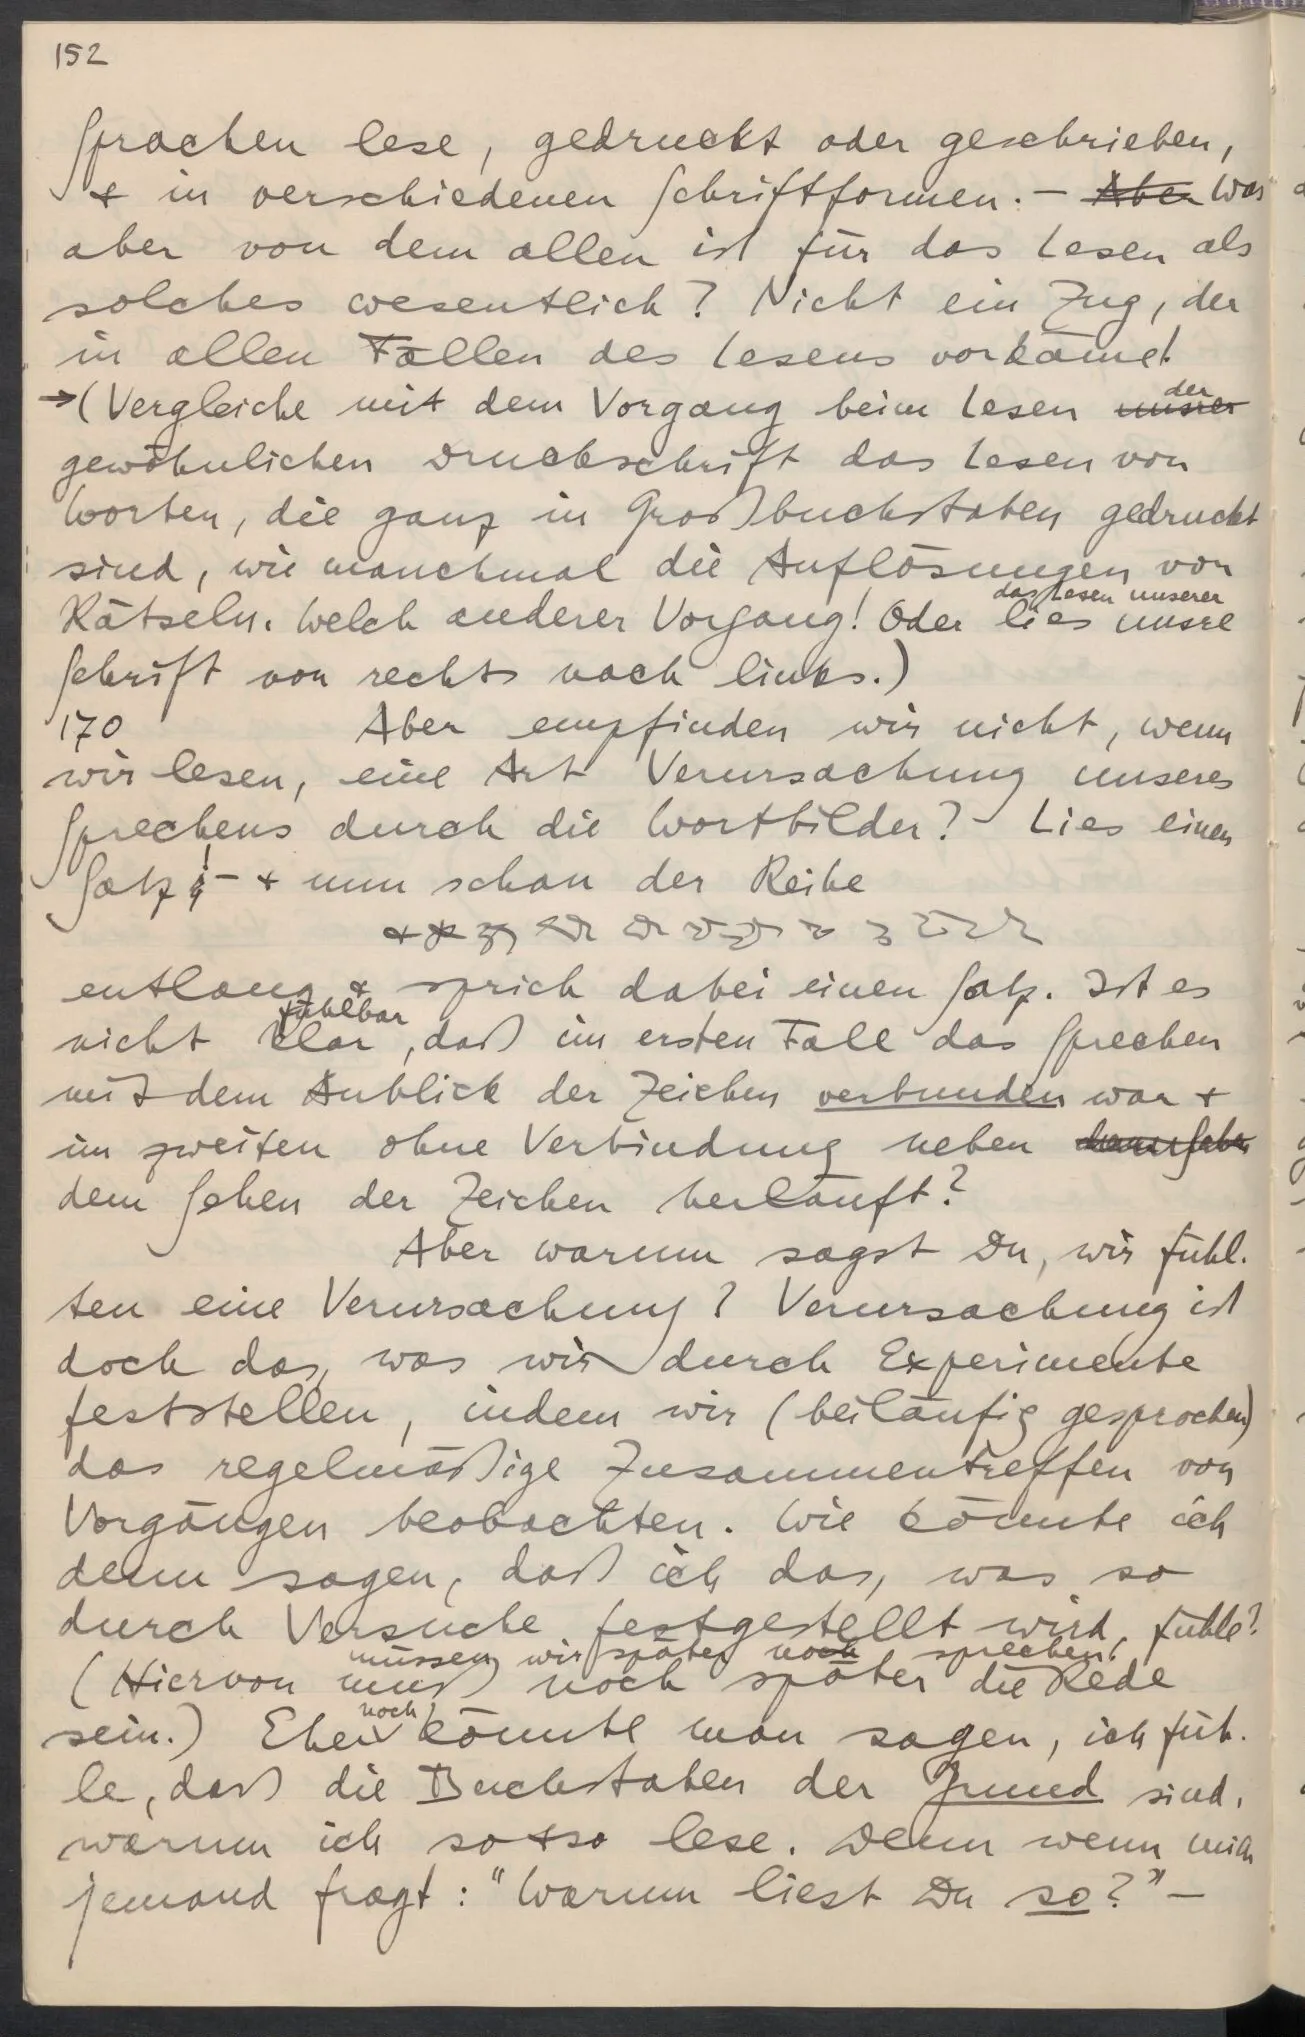 152
Sprachen lese, gedruckt oder geschrieben,
& in verschiedenen Schriftformen. – Aber Was
aber von dem allen ist für das Lesen als
solches wesentlich? Nicht ein Zug, der
in allen Fällen des Lesens vorkäme!
→(Vergleiche mit dem Vorgang beim Lesen unsrer der
gewöhnlichen Druckschrift das Lesen von
Worten, die ganz in Großbuchstaben gedruckt
sind, wie manchmal die Auflösungen von
das Lesen unserer
Rätseln. Welch anderer Vorgang! Oder lies unsre
Schrift von rechts nach links.)
170 Aber empfinden wir nicht, wenn
wir lesen, eine Art Verursachung unseres
Sprechens durch die Wortbilder? – Lies einen
Satz! – & nun schau der Reihe
entlang & sprich dabei einen Satz. Ist es
fühlbar
nicht klar, daß im ersten Fall das Sprechen
mit dem Anblick der Zeichen verbunden war &
im zweiten ohne Verbindung neben
dem Sehen der Zeichen herläuft?
Aber warum sagst Du, wir fühl-
ten eine Verursachung? Verursachung ist
doch das, was wir durch Experimente
feststellen, indem wir (beiläufig gesprochen)
das regelmäßige Zusammentreffen von
Vorgängen beobachten. Wie könnte ich
denn sagen, daß ich das, was so
durch Versuche festgestellt wird, fühle?
müssen wir später noch sprechen!
(Hiervon muß noch später die Rede
noch
sein.) Eher könnte man sagen, ich füh-
le, daß die Buchstaben der Grund sind,
warum ich so & so lese. Denn wenn mich
jemand fragt: "Warum liest Du so?" –